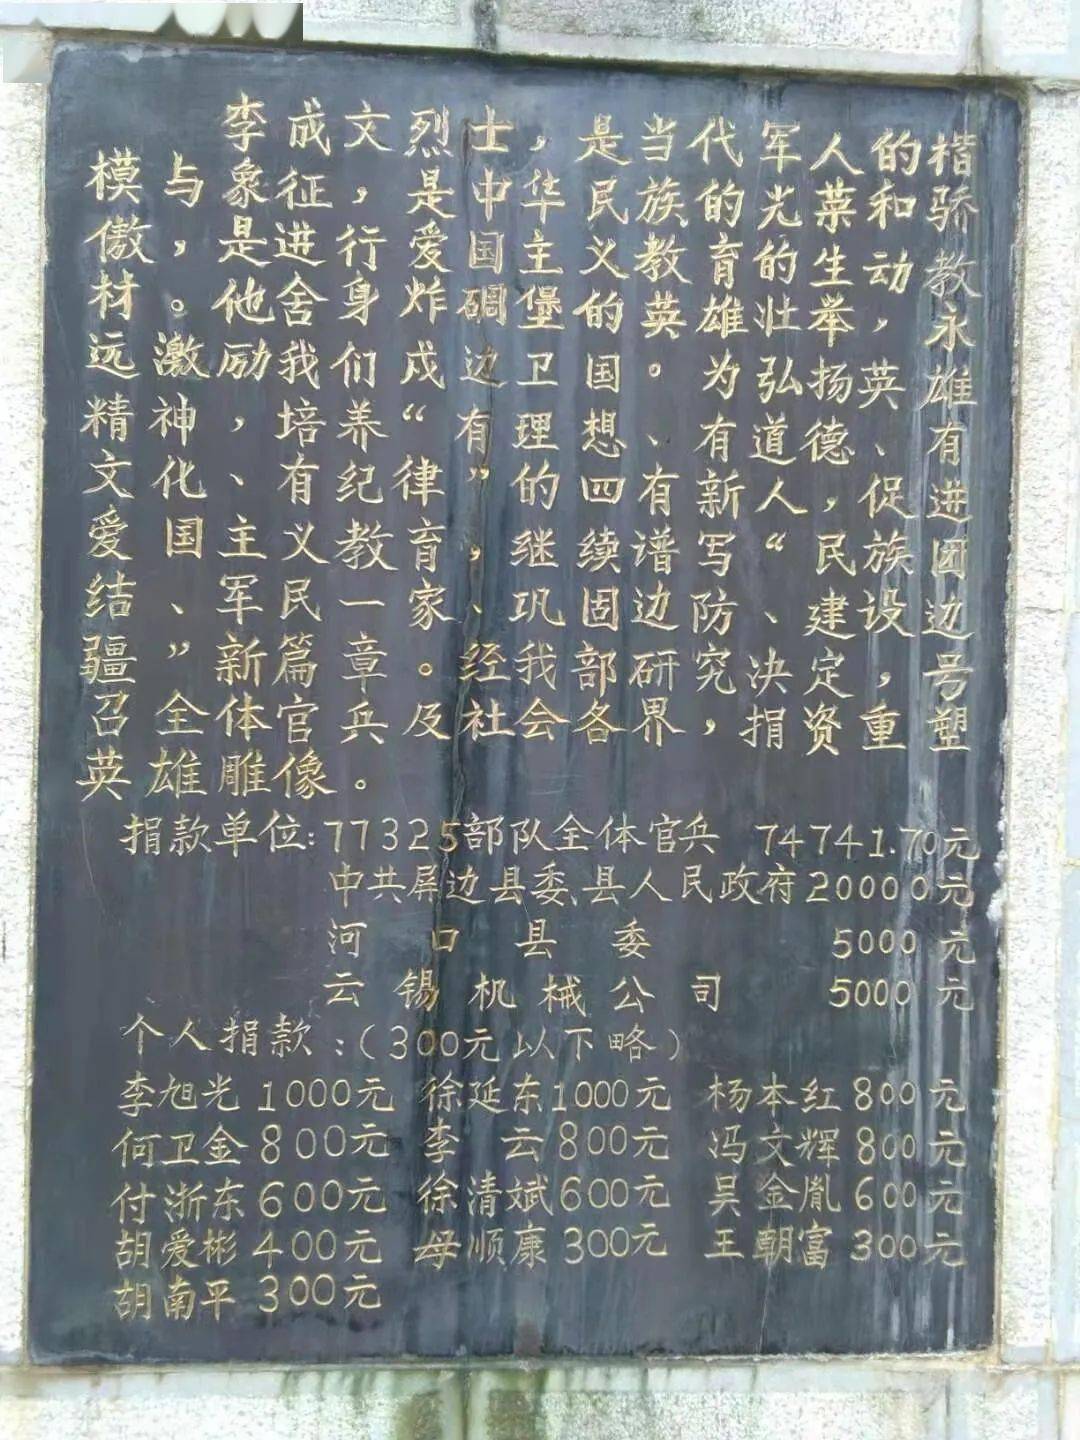 李成文烈士,是当代军人的楷
模与象征,是中华民族的光荣和骄
傲,是进行爱国主义教育的生动教
材。他舍身炸碉堡的英雄壮举,永
远激励我们戍边卫国。为弘扬英雄
精神,培养“有理想、有道德、有
文化、有纪律”的四有新人,促进
爱国主义教育,继续谱写“民族团
结、军民一家、巩固边防、建设边
疆”新篇章。经我部研究、决定,号
召全体官兵及社会各界,捐资重塑
英雄雕像。
捐款单位:77325部队全体官兵 74741.70元
中共屏边县委、县人民政府20000元
河口县委 5000元
云锡机械公司 5000元
个人捐款:(300元以下略)
李旭光1000元 徐延东1000元 杨本红800元
何卫金800元 李云800元 冯文辉800元
付浙东600元 徐清斌600元 吴金胤600元
胡爱彬400元 母顺康300元 王朝富300元
胡南平300元